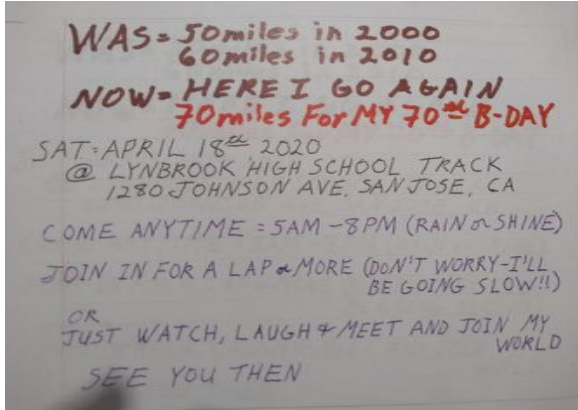 WAS = 50 miles in 2000
60 miles in 2010
NOW = HERE I GO AGAIN
70 miles FOR MY 70th B-DAY
SAT: APRIL 18th 2020
@ LYNBROOK HIGH SCHOOL TRACK
1280 JOHNSON AVE, SAN JOSE, CA
COME ANYTIME = 5AM - 8PM (RAIN or SHINE)
JOIN IN FOR A LAP or MORE (DON'T WORRY - I'LL
BE GOING SLOW!!)
OR
JUST WATCH, LAUGH & MEET AND JOIN MY
WORLD
SEE YOU THEN